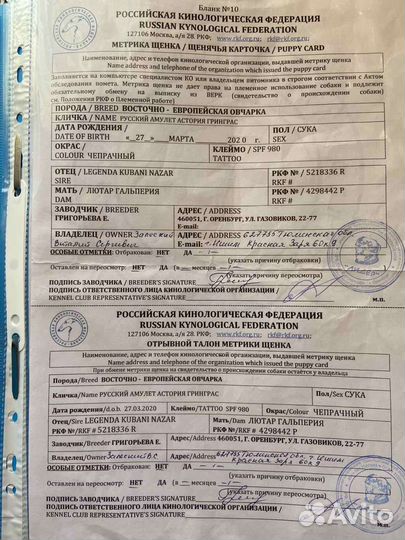 Бланк №10
РОССИЙСКАЯ КИНОЛОГИЧЕСКАЯ ФЕДЕРАЦИЯ
RUSSIAN KYNOLOGICAL FEDERATION
127106 Москва, а/я 28. РКФ: www.rkf.org.ru; rkf@rkf.org.ru;
МЕТРИКА ЩЕНКА / ЩЕНЯЧЬЯ КАРТОЧКА / PUPPY CARD
Наименование, адрес и телефон кинологической организации, выдавшей метрику щенка
Name address and telephone of the kinological organization which issued the puppy card
Заполняется на компьютере специалистом КО или владельцем питомника в строгом соответствии с Актом
обследования помета. Метрика не дает права на племенное использование собаки и подлежит
обязательному обмену на выписку из ВЕРК (свидетельство о происхождении собаки)
см.Положения РКФ о Племенной работе)
ПОРОДА / BREED ВОСТОЧНО - ЕВРОПЕЙСКАЯ ОВЧАРКА
КЛИЧКА / NAME РУССКИЙ АМУЛЕТ АСТОРИЯ ГРИНГРАС
ДАТА РОЖДЕНИЯ ПОЛ / СУКА
DATE OF BIRTH «_27__» ___МАРТА____ 2020 г. SEX
ОКРАС / КЛЕЙМО / SPF 980
COLOUR ЧЕПРАЧНЫЙ TATTOO
ОТЕЦ / LEGENDA KUBANI NAZAR РКФ № / 5218336 R
SIRE RKF #
МАТЬ / ЛЮТАР ГАЛЬПЕРИЯ РКФ № / 4298442 P
DAM RKF #
ЗАВОДЧИК / BREEDER АДРЕС / ADDRESS
ГРИГОРЬЕВА Е. 460051, Г. ОРЕНБУРГ, УЛ. ГАЗОВИКОВ, 22-77
E-mail:
ВЛАДЕЛЕЦ / OWNER АДРЕС / ADDRESS 627755 Тюменская обл.
Виталий Сергеевич E-mail: г. Ишим Красная Заря 60к9
ОСОБЫЕ ОТМЕТКИ: Отбракован: НЕТ ДА
(указать причину отбраковки)
Оставлен на пересмотр: НЕТ ДА (в – месяцев
(указать причину пересмотра)
ПОДПИСЬ ЗАВОДЧИКА / BREEDER'S SIGNATURE
ПОДПИСЬ ОТВЕТСТВЕННОГО ЛИЦА КИНОЛОГИЧЕСКОЙ ОРГАНИЗАЦИИ/
KENNEL CLUB REPRESENTATIVE'S SIGNATURE м.п.
РОССИЙСКАЯ КИНОЛОГИЧЕСКАЯ ФЕДЕРАЦИЯ
RUSSIAN KYNOLOGICAL FEDERATION
127106 Москва, а/я 28. РКФ: www.rkf.org.ru; rkf@rkf.org.ru;
ОТРЫВНОЙ ТАЛОН МЕТРИКИ ЩЕНКА
Наименование, адрес и телефон кинологической организации, выдавшей метрику щенка
Name address and telephone of the kinological organization which issued the puppy card
При обмене метрики щенка на свидетельство о происхождении собаки остаётся у владельца
Порода/Breed ВОСТОЧНО - ЕВРОПЕЙСКАЯ ОВЧАРКА
Кличка/Name РУССКИЙ АМУЛЕТ АСТОРИЯ ГРИНГРАС Пол/Sex СУКА
Дата рождения/d.o.b. 27.03.2020 Клеймо/TATTOO SPF 980 Окрас/Colour ЧЕПРАЧНЫЙ
Отец/Sire LEGENDA KUBANI NAZAR Мать/Dam ЛЮТАР ГАЛЬПЕРИЯ
РКФ №/RKF # 5218336 R РКФ №/RKF # 4298442 P
Заводчик/Breeder ГРИГОРЬЕВА Е. Адрес/Address 460051, Г. ОРЕНБУРГ, УЛ. ГАЗОВИКОВ, 22-77
Владелец/Owner Адрес/Address 627755 Тюменская обл. г Ишим
Красная Заря 60к9
ОСОБЫЕ ОТМЕТКИ: Отбракован: НЕТ ДА
(указать причину отбраковки)
Оставлен на пересмотр: НЕТ ДА (в – месяцев
(указать причину пересмотра)
ПОДПИСЬ ЗАВОДЧИКА / BREEDER'S SIGNATURE
ПОДПИСЬ ОТВЕТСТВЕННОГО ЛИЦА КИНОЛОГИЧЕСКОЙ ОРГАНИЗАЦИИ/
KENNEL CLUB REPRESENTATIVE'S SIGNATURE
Avito